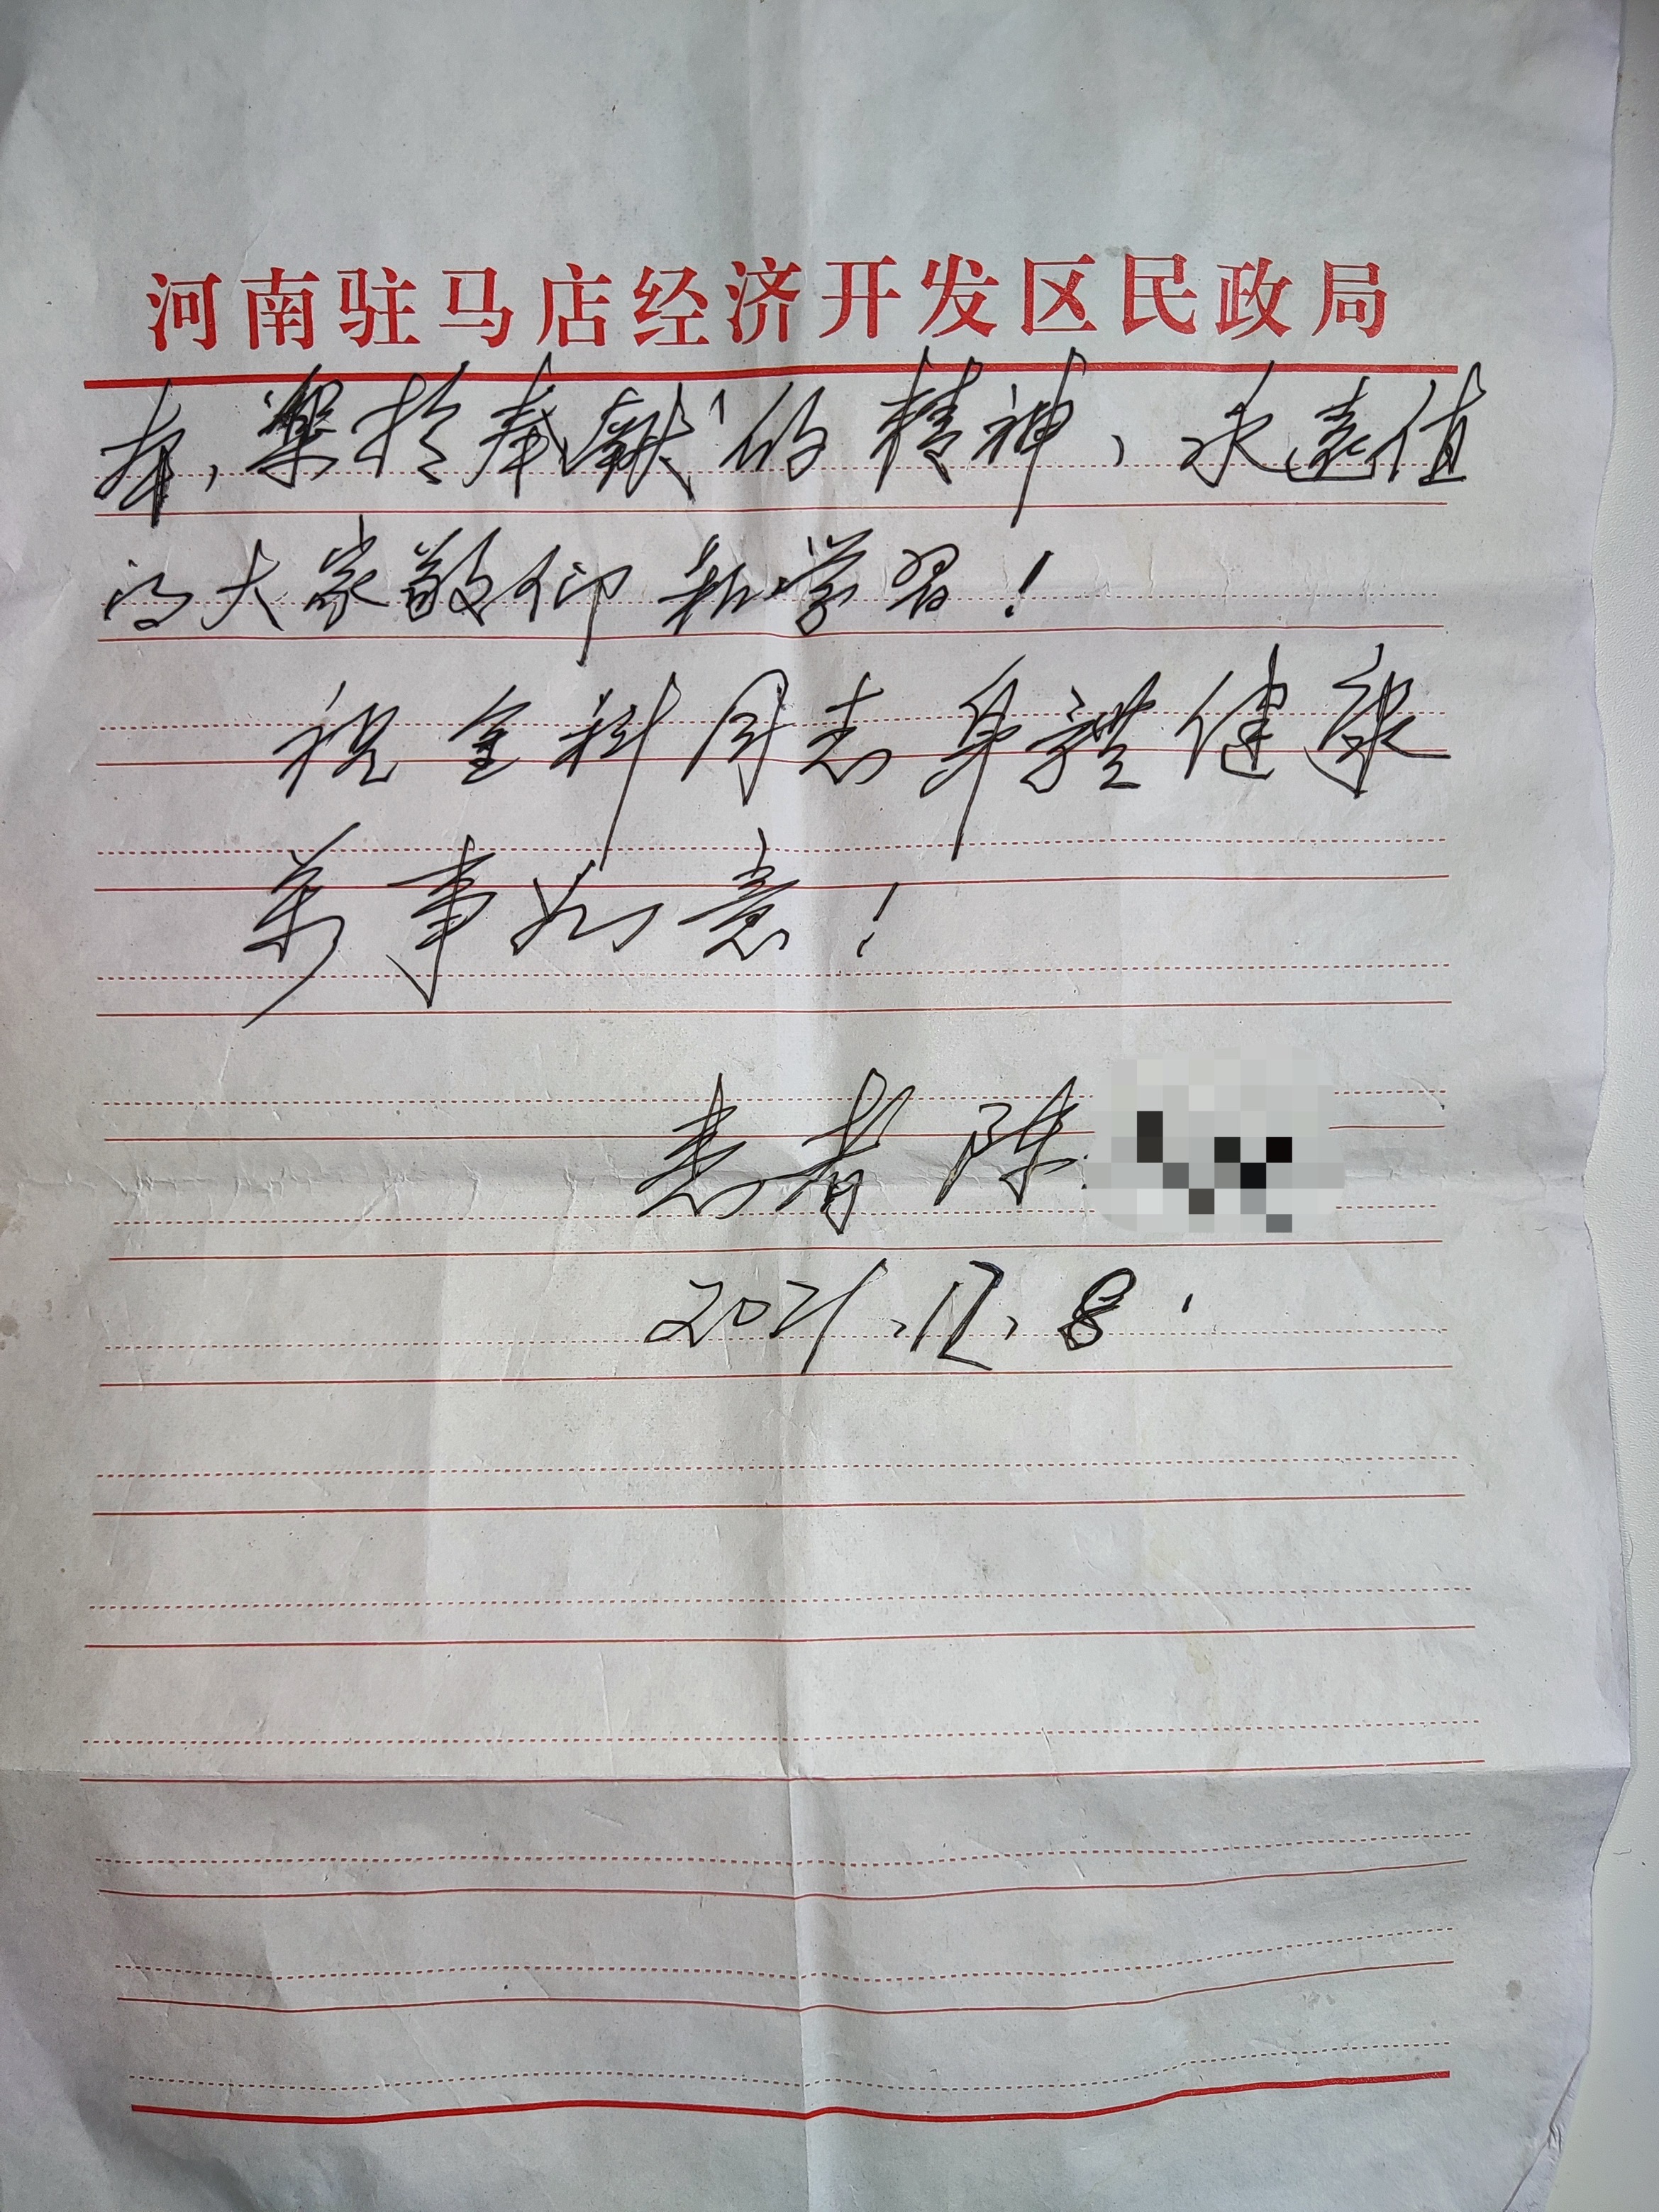 河南驻马店经济开发区民政局
、樂於奉献"的精神、永远值
得大家敬仰和学习！
祝全科同志身體健康
万事如意！
患者 陈
2021.12.8.